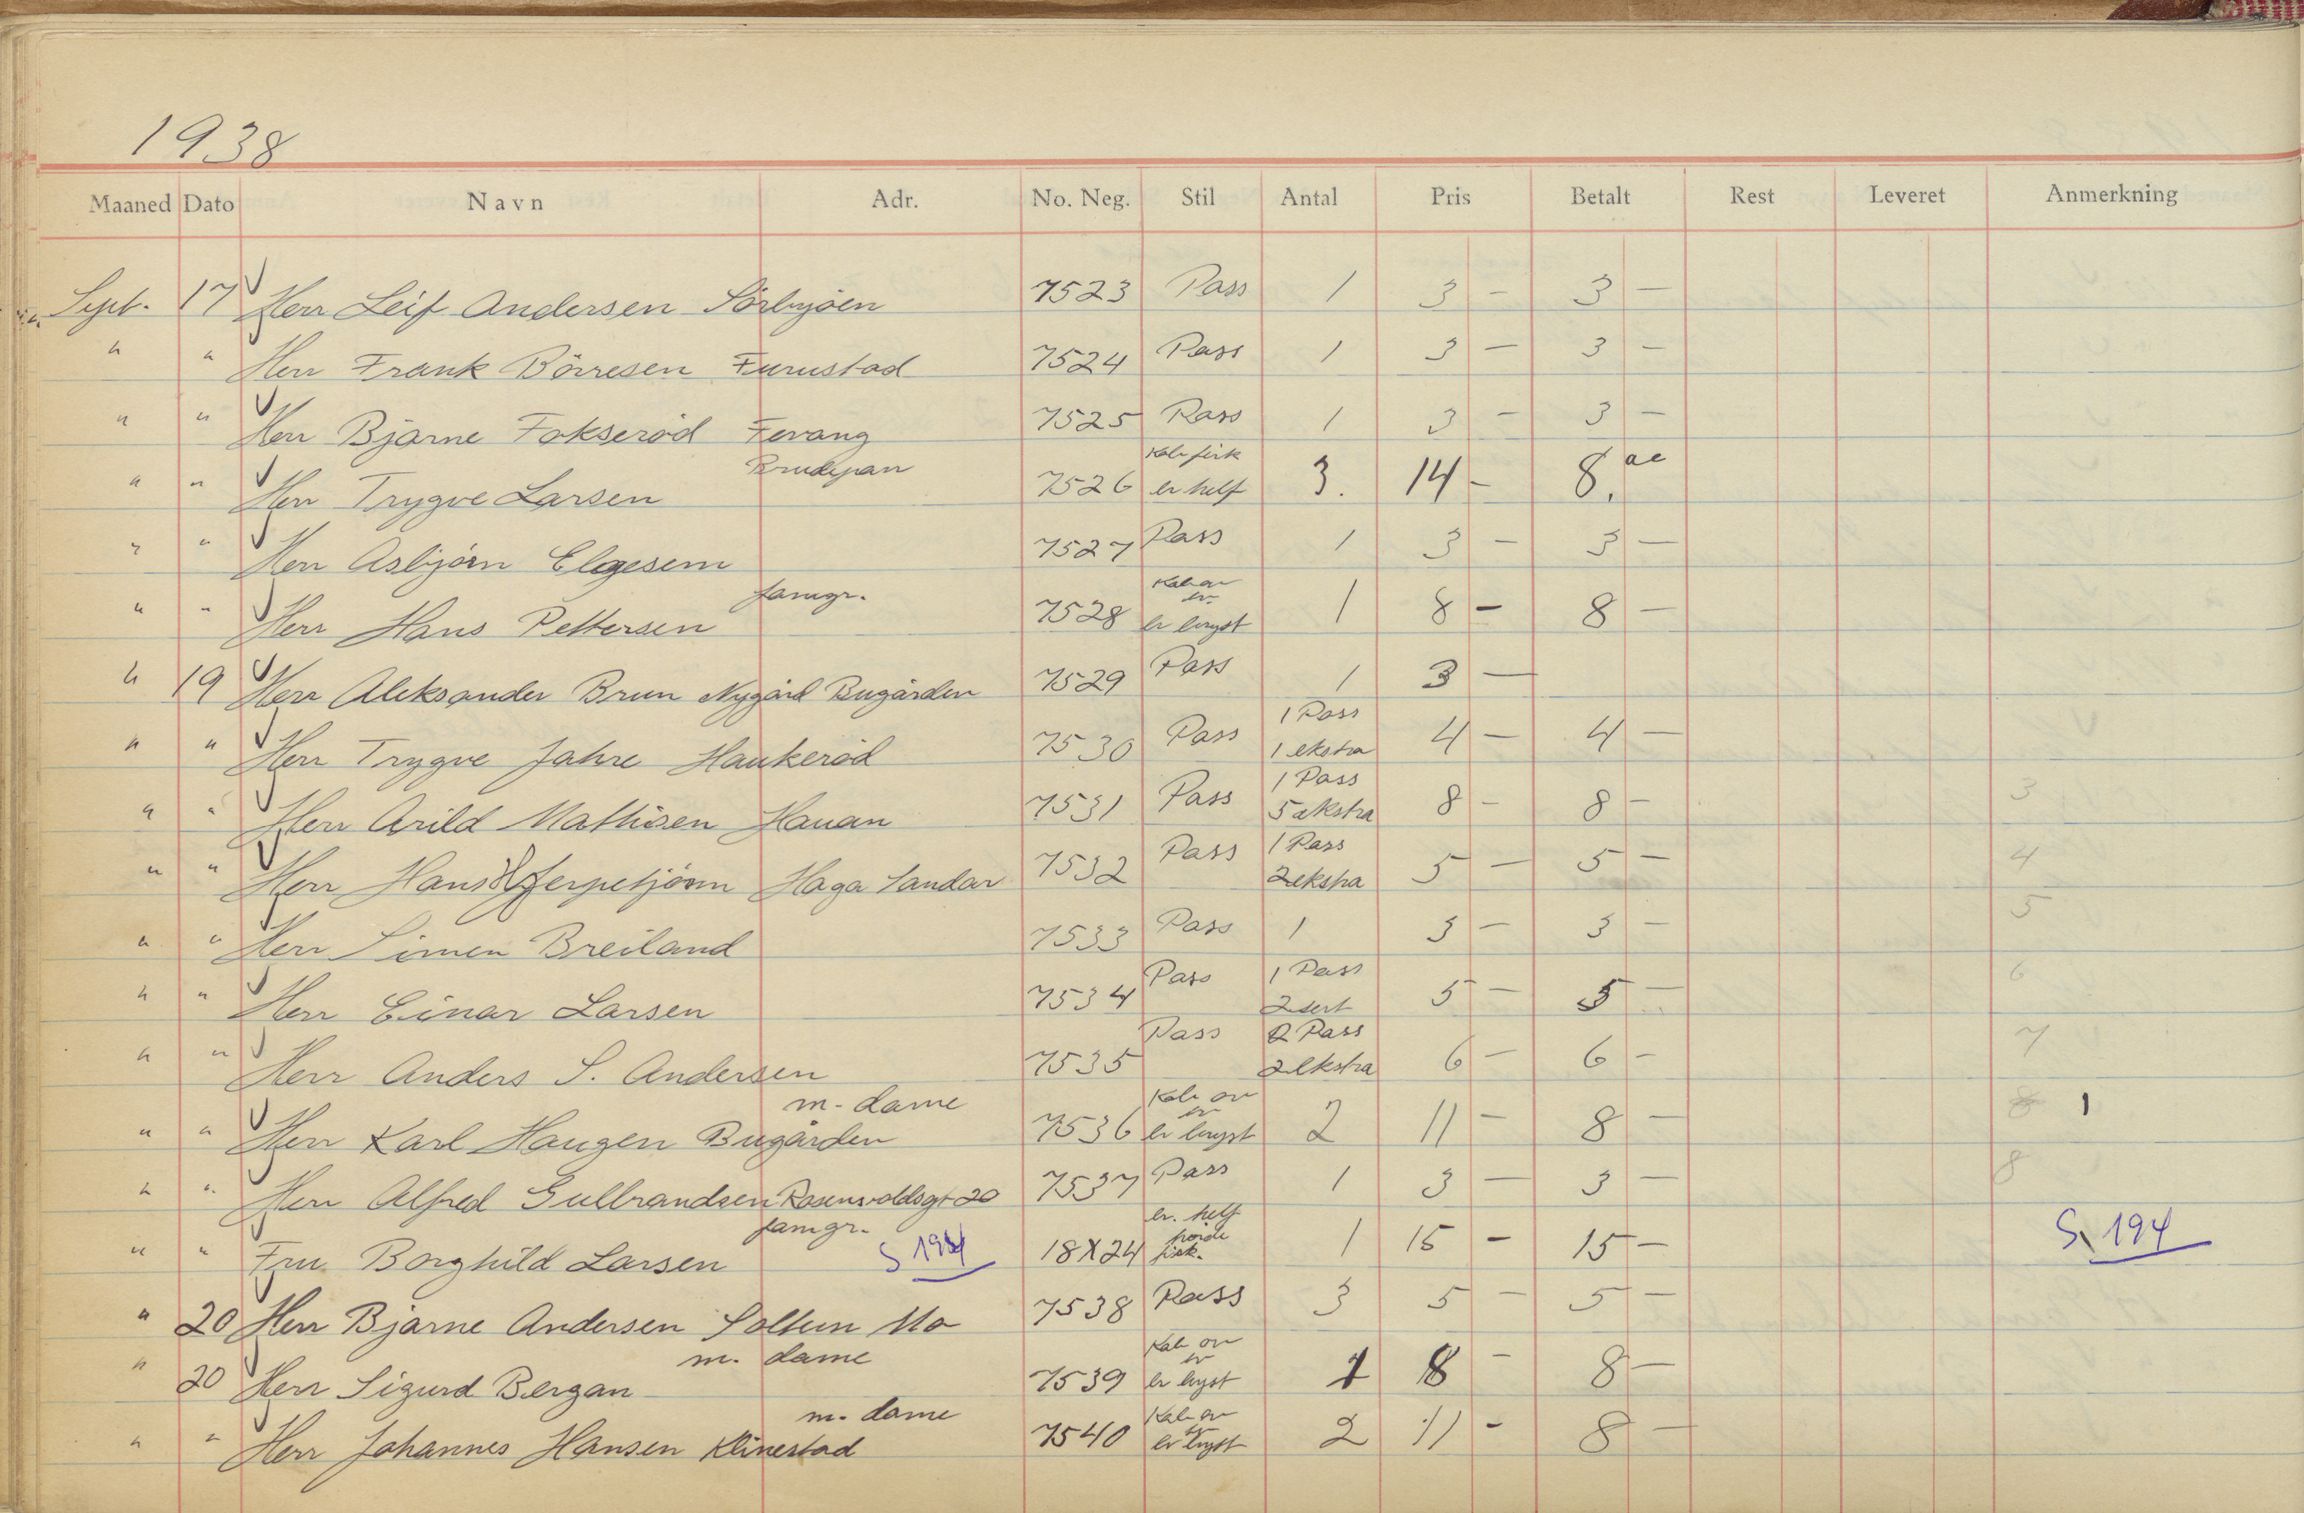 1938
Maaned Dato Navn Adr. No. Neg. Stil Antal Pris Betalt Rest Leveret Anmerkning
Sept. 17 Herr Leif Andersen Sörbyöen 7523 Pass 1 3 - 3 -
" " Herr Frank Börresen Furustad 7524 Pass 1 3 - 3 -
" " Herr Bjarne Fokseröd Fevang 7525 Pass 1 3 - 3 -
Brudepar Kab fisk
" " Herr Trygve Larsen 7526 er helf 3. 14 - 8.
" " Herr Asbjörn Elgesem 7527 Pass 1 3 - 3 -
famgr. Kab ov er
" " Herr Hans Pettersen 7528 er bryst 1 8 - 8 -
" 19 Herr Aleksander Brun Nygård Bugården 7529 Pass 1 3 -
1 Pass
" " Herr Trygve Jahre Haukeröd 7530 Pass 1 ekstra 4 - 4 -
1 Pass
" " Herr Arild Mathisen Hauan 7531 Pass 5 ekstra 8 - 8 - 3
1 Pass
" " Herr Hans Hjerpetjörn Haga Sandar 7532 Pass 2 ekstra 5 - 5 - 4
" " Herr Simen Breiland 7533 Pass 1 3 - 3 - 5
1 Pass
" " Herr Einar Larsen 7534 Pass 2 sert 5 - 5 - 6
2 Pass
" " Herr Anders S. Andersen 7535 Pass 2 ekstra 6 - 6 - 7
m. dame Kab ov er
" " Herr Karl Haugen Bugården 7536 er bryst 2 11 - 8 - 8 1
" " Herr Alfred Gulbrandsen Rosenvoldsgt 20 7537 Pass 1 3 - 3 - 8
famgr. er. helf
" " Fru Borghild Larsen S 194 18X24 fisk. 1 15 - 15 - S. 194
" 20 Herr Bjarne Andersen Soltun Mo 7538 Pass 3 5 - 5 -
m. dame Kab ov er
" 20 Herr Sigurd Bergan 7539 er bryst 1 8 - 8 -
m. dame Kab ov er
" " Herr Johannes Hansen Klinestad 7540 er bryst 2 11 - 8 -